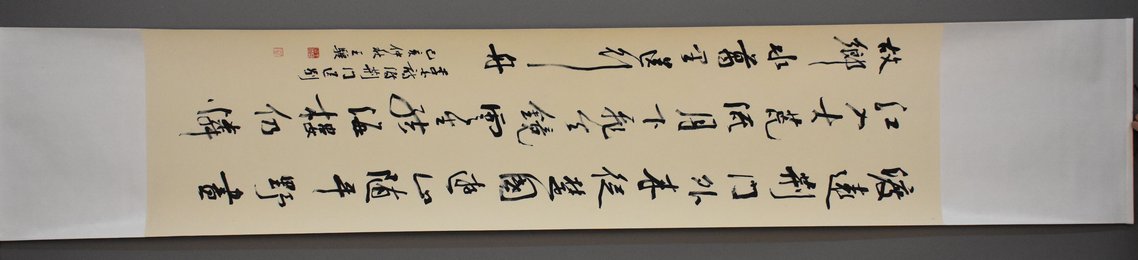 渡遠荊門外來從楚國遊山隨平野盡
江入大荒流月下飛天鏡雲生結海樓仍憐
故鄉水萬里送行舟
李白詩渡荊門送別
己亥仲秋王